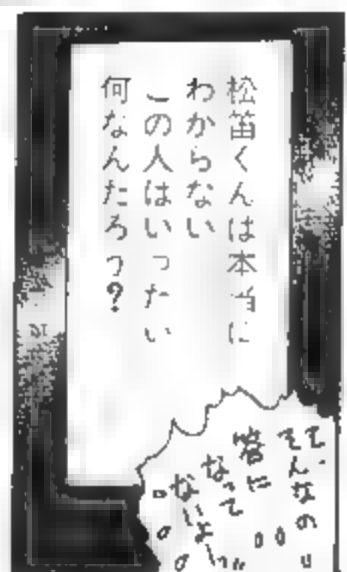 松笛くんは本当に
わからない
この人はいったい
何なんだろう?
そ、
そんなの
答に
なって
ないよ